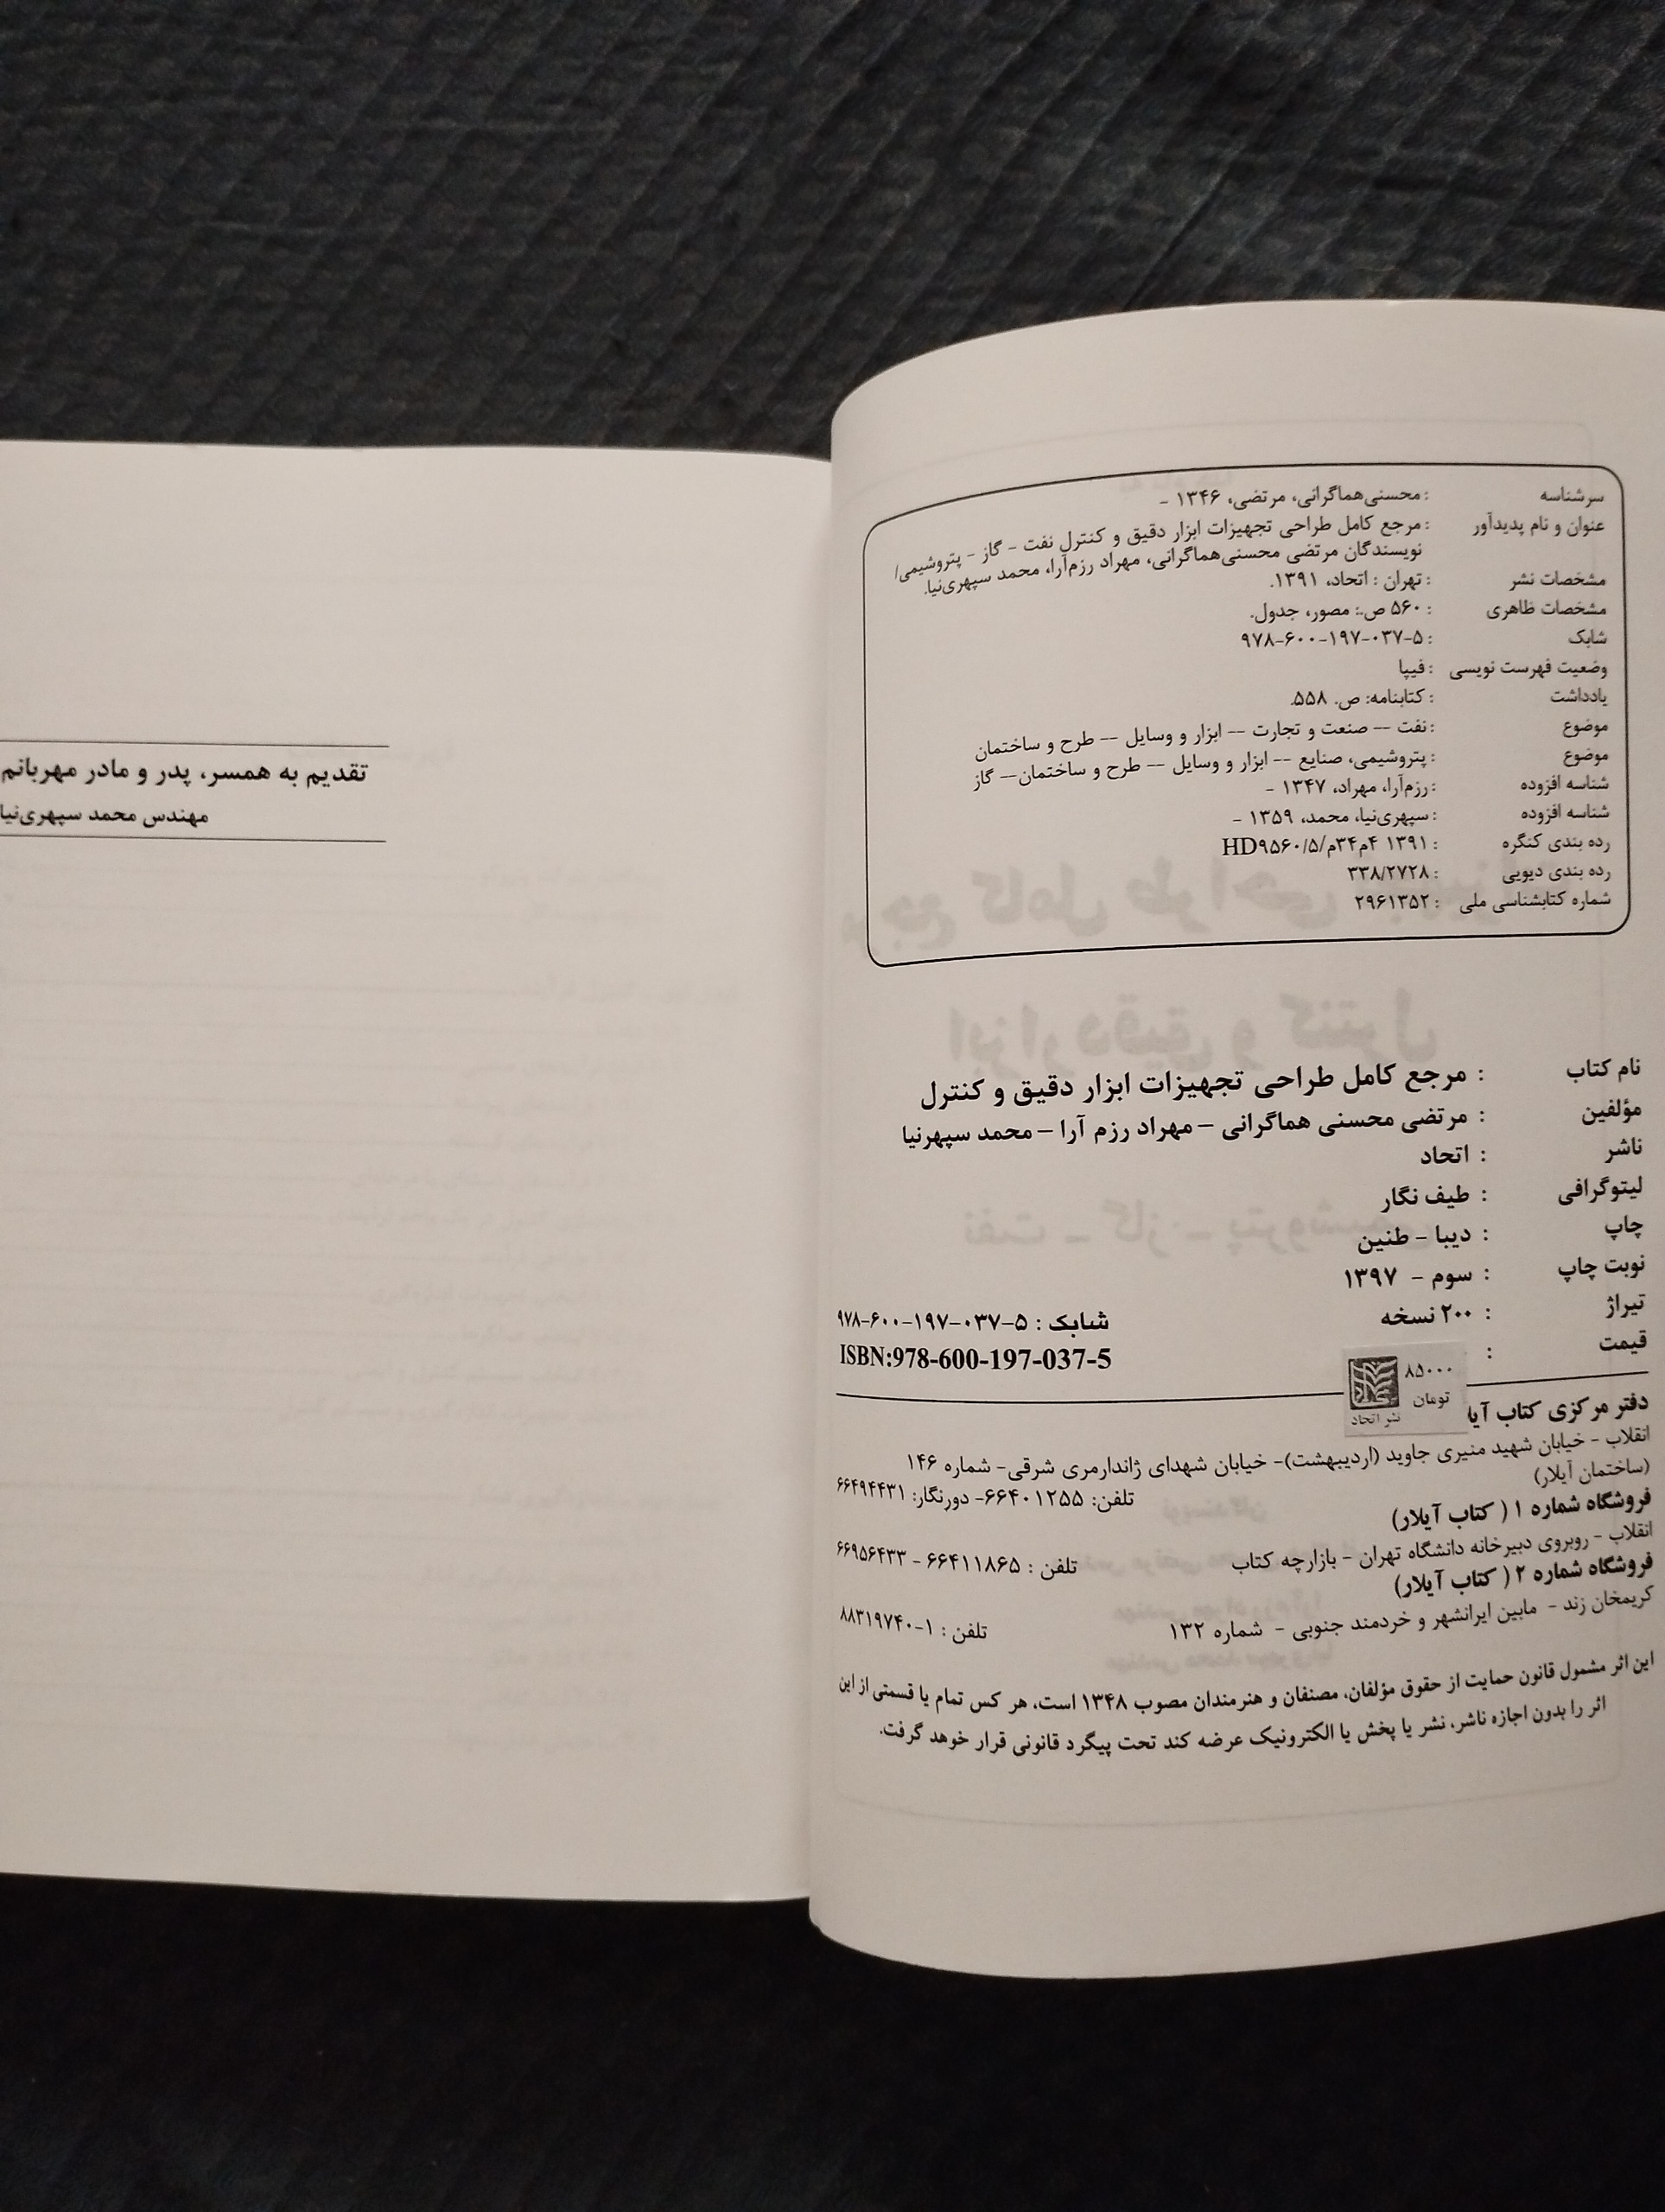 سرشناسه : محسنی‌هماگرانی، مرتضی، ۱۳۴۶ -
عنوان و نام پدیدآور : مرجع کامل طراحی تجهیزات ابزار دقیق و کنترل نفت - گاز - پتروشیمی/
نویسندگان مرتضی محسنی‌هماگرانی، مهراد رزم‌آرا، محمد سپهری‌نیا.
مشخصات نشر : تهران : اتحاد، ۱۳۹۱.
مشخصات ظاهری : ۵۶۰ ص.: مصور، جدول.
شابک : ۹۷۸-۶۰۰-۱۹۷-۰۳۷-۵
وضعیت فهرست نویسی : فیپا
یادداشت : کتابنامه: ص. ۵۵۸.
موضوع : نفت -- صنعت و تجارت -- ابزار و وسایل -- طرح و ساختمان
موضوع : پتروشیمی، صنایع -- ابزار و وسایل -- طرح و ساختمان-- گاز
شناسه افزوده : رزم‌آرا، مهراد، ۱۳۴۷ -
شناسه افزوده : سپهری‌نیا، محمد، ۱۳۵۹ -
رده بندی کنگره : ۱۳۹۱ ۴م۳۴م/HD۹۵۶۰/۵
رده بندی دیویی : ۳۳۸/۲۷۲۸
شماره کتابشناسی ملی : ۲۹۶۱۳۵۲
نام کتاب : مرجع کامل طراحی تجهیزات ابزار دقیق و کنترل
مؤلفین : مرتضی محسنی هماگرانی – مهراد رزم آرا – محمد سپهرنیا
ناشر : اتحاد
لیتوگرافی : طیف نگار
چاپ : دیبا – طنین
نوبت چاپ : سوم – ۱۳۹۷
تیراژ : ۲۰۰ نسخه
شابک : ۵-۰۳۷-۱۹۷-۶۰۰-۹۷۸
قیمت :
ISBN:978-600-197-037-5
۸۵۰۰۰
تومان
نشر اتحاد
دفتر مرکزی کتاب آیلا
انقلاب - خیابان شهید منیری جاوید (اردیبهشت)- خیابان شهدای ژاندارمری شرقی- شماره ۱۴۶
(ساختمان آیلار) تلفن: ۶۶۴۰۱۲۵۵- دورنگار: ۶۶۴۹۴۴۳۱
فروشگاه شماره ۱ ( کتاب آیلار)
انقلاب - روبروی دبیرخانه دانشگاه تهران - بازارچه کتاب تلفن : ۶۶۴۱۱۸۶۵ - ۶۶۹۵۶۴۳۳
فروشگاه شماره ۲ ( کتاب آیلار)
کریمخان زند - مابین ایرانشهر و خردمند جنوبی - شماره ۱۳۲ تلفن : ۱-۸۸۳۱۹۷۴۰
این اثر مشمول قانون حمایت از حقوق مؤلفان، مصنفان و هنرمندان مصوب ۱۳۴۸ است، هر کس تمام یا قسمتی از این
اثر را بدون اجازه ناشر، نشر یا پخش یا الکترونیک عرضه کند تحت پیگرد قانونی قرار خواهد گرفت.
تقدیم به همسر، پدر و مادر مهربانم
مهندس محمد سپهری‌نیا